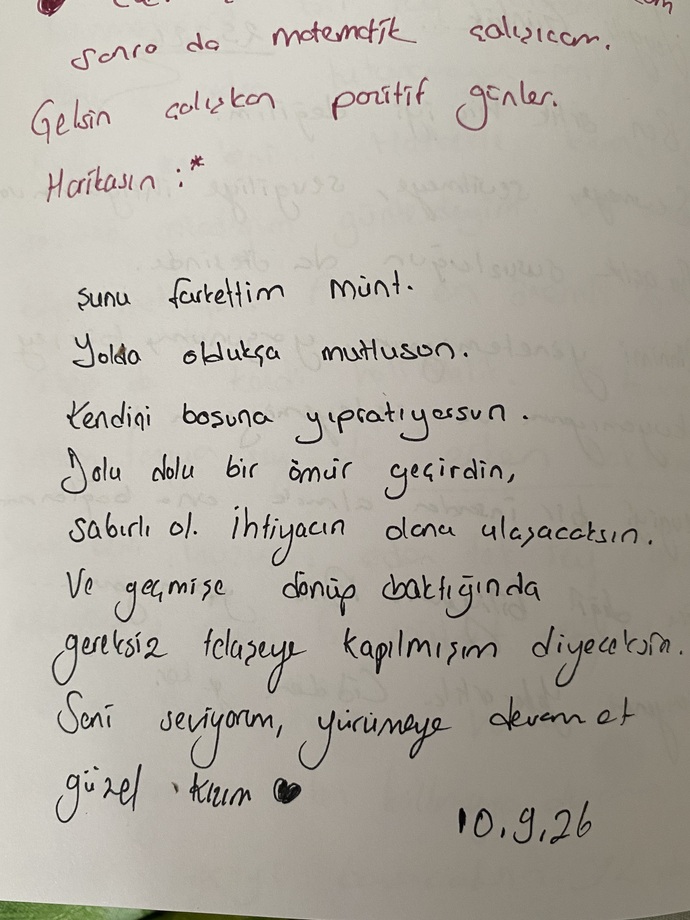 sonra da matematik çalışıcam.
Gelsin çalışkan pozitif günler.
Harikasın :*
şunu farkettim münt.
Yolda oldukça mutlusun.
Kendini boşuna yıpratıyorsun.
Dolu dolu bir ömür geçirdin,
sabırlı ol. İhtiyacın olana ulaşacaksın.
Ve geçmişe dönüp baktığında
gereksiz telaşeye kapılmışım diyeceksin.
Seni seviyorum, yürümeye devam et
güzel kızım
10.9.26